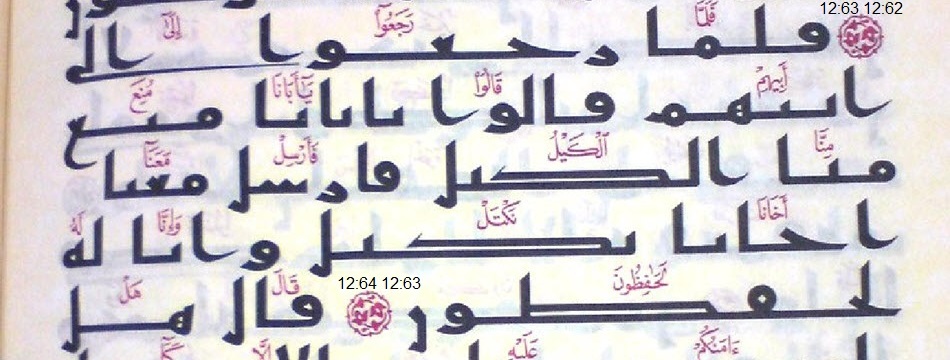 12:63 12:62
فَلَمَّا رَجَعُوٓا۟ إِلَىٰٓ
فلما رجعوا الى
أَبِيهِمْ قَالُوا۟ يَٰٓأَبَانَا مُنِعَ
ابيهم قالوا يابانا منع
مِنَّا ٱلْكَيْلُ فَأَرْسِلْ مَعَنَآ
منا الكيل فارسل معنا
أَخَانَا نَكْتَلْ وَإِنَّا لَهُۥ
اخانا نكتل وانا له
لَحَٰفِظُونَ 12:64 12:63 قَالَ هَلْ
لحفظون قال هل
ءَامَنُكُمْ عَلَيْهِ إِلَّا